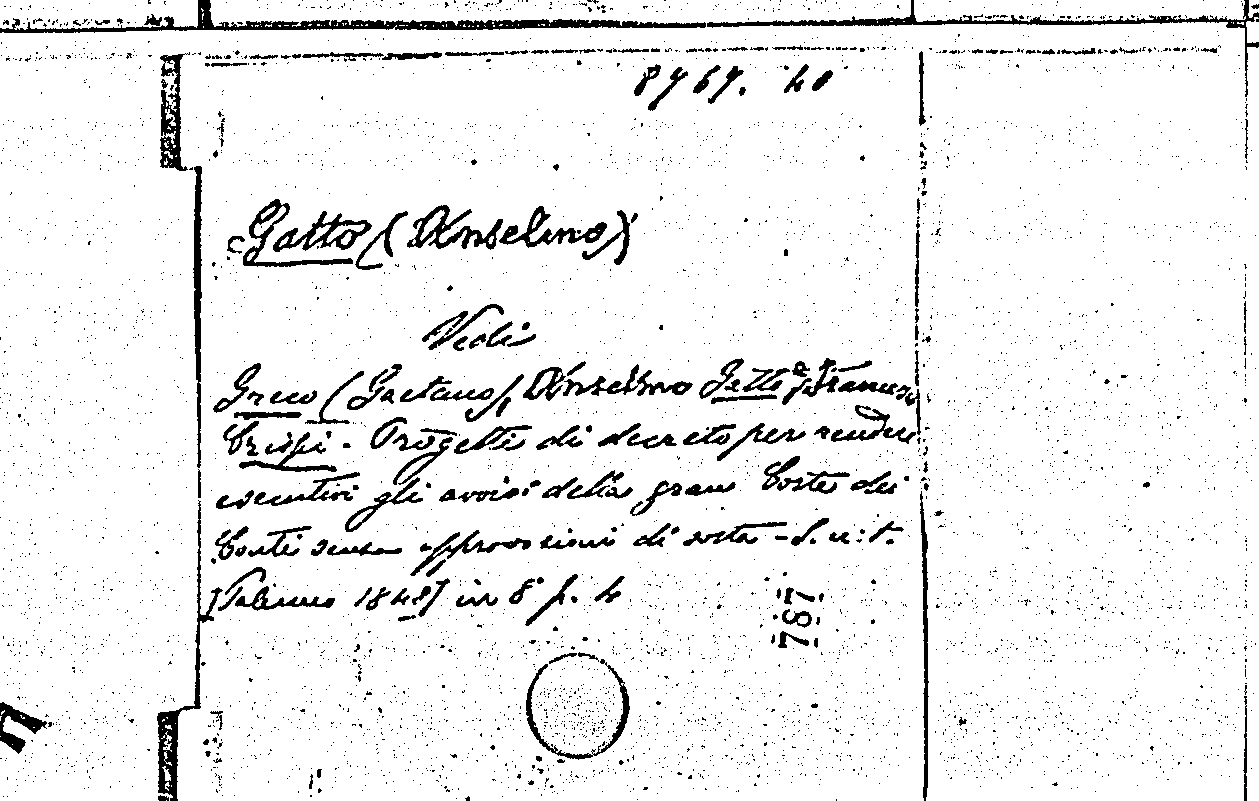 8767. 40
Gatto (Anselmo)
Vedi
Greco (Gaetano), Anselmo Gatto e Francesco
Crispi - Progetti di decreto per rendere
esecutivi gli avvisi della gran Corte dei
Conti senza approvazioni di sorta - S. n: t.
[Palermo 1848] in 8° p. 4
787